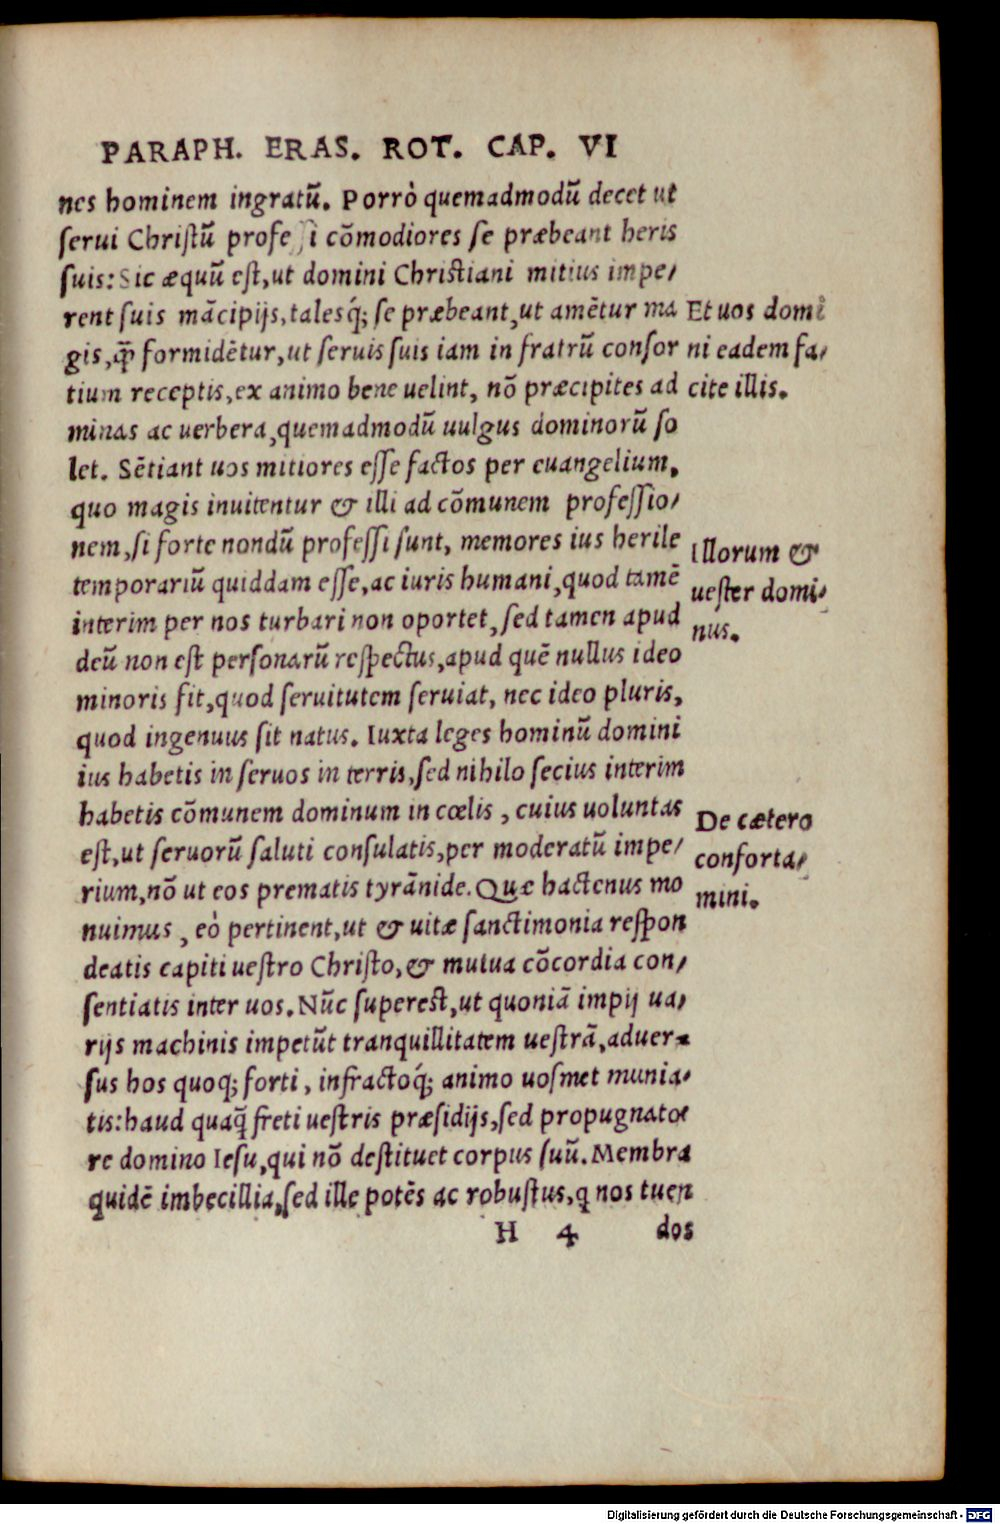 PARAPH. ERAS. ROT. CAP. VI
nes hominem ingratũ. Porrò quemadmodũ decet ut
ſerui Chriſtũ profeſſi cõmodiores ſe præbeant heris
ſuis: Sic æquũ eſt, ut domini Chriſtiani mitius impe/
rent ſuis mãcipijs, talesq́; ſe præbeant, ut amẽtur ma
gis, q̃ formidẽtur, ut ſeruis ſuis iam in fratrũ conſor
tium receptis, ex animo bene uelint, nõ præcipites ad
minas ac uerbera, quemadmodũ uulgus dominorũ ſo
let. Sẽtiant uos mitiores eſſe factos per euangelium,
quo magis inuitentur & illi ad cõmunem profeſſio/
nem, ſi forte nondũ profeſſi ſunt, memores ius herile
temporariũ quiddam eſſe, ac iuris humani, quod tamẽ
interim per nos turbari non oportet, ſed tamen apud
deũ non eſt perſonarũ reſpectus, apud quẽ nullus ideo
minoris fit, quod ſeruitutem ſeruiat, nec ideo pluris,
quod ingenuus ſit natus. Iuxta leges hominũ domini
ius habetis in ſeruos in terris, ſed nihilo ſecius interim
habetis cõmunem dominum in cœlis, cuius uoluntas
eſt, ut ſeruorũ ſaluti conſulatis, per moderatũ impe/
rium, nõ ut eos prematis tyrãnide. Quæ hactenus mo
nuimus, eò pertinent, ut & uitæ ſanctimonia reſpon
deatis capiti ueſtro Chriſto, & mutua cõcordia con/
ſentiatis inter uos. Nũc ſupereſt, ut quoniã impij ua/
rijs machinis impetũt tranquillitatem ueſtrã, aduer/
ſus hos quoq; forti, infractoq́; animo uoſmet munia/
tis: haud quaq̃ freti ueſtris præſidijs, ſed propugnato
re domino Ieſu, qui nõ deſtituet corpus ſuũ. Membra
quidẽ imbecillia, ſed ille potẽs ac robuſtus, q nos tuen
H 4 dos
Et uos domi
ni eadem fa/
cite illis.
Illorum &
ueſter domi/
nus.
De cætero
conforta/
mini.
Digitalisierung gefördert durch die Deutsche Forschungsgemeinschaft - DFG